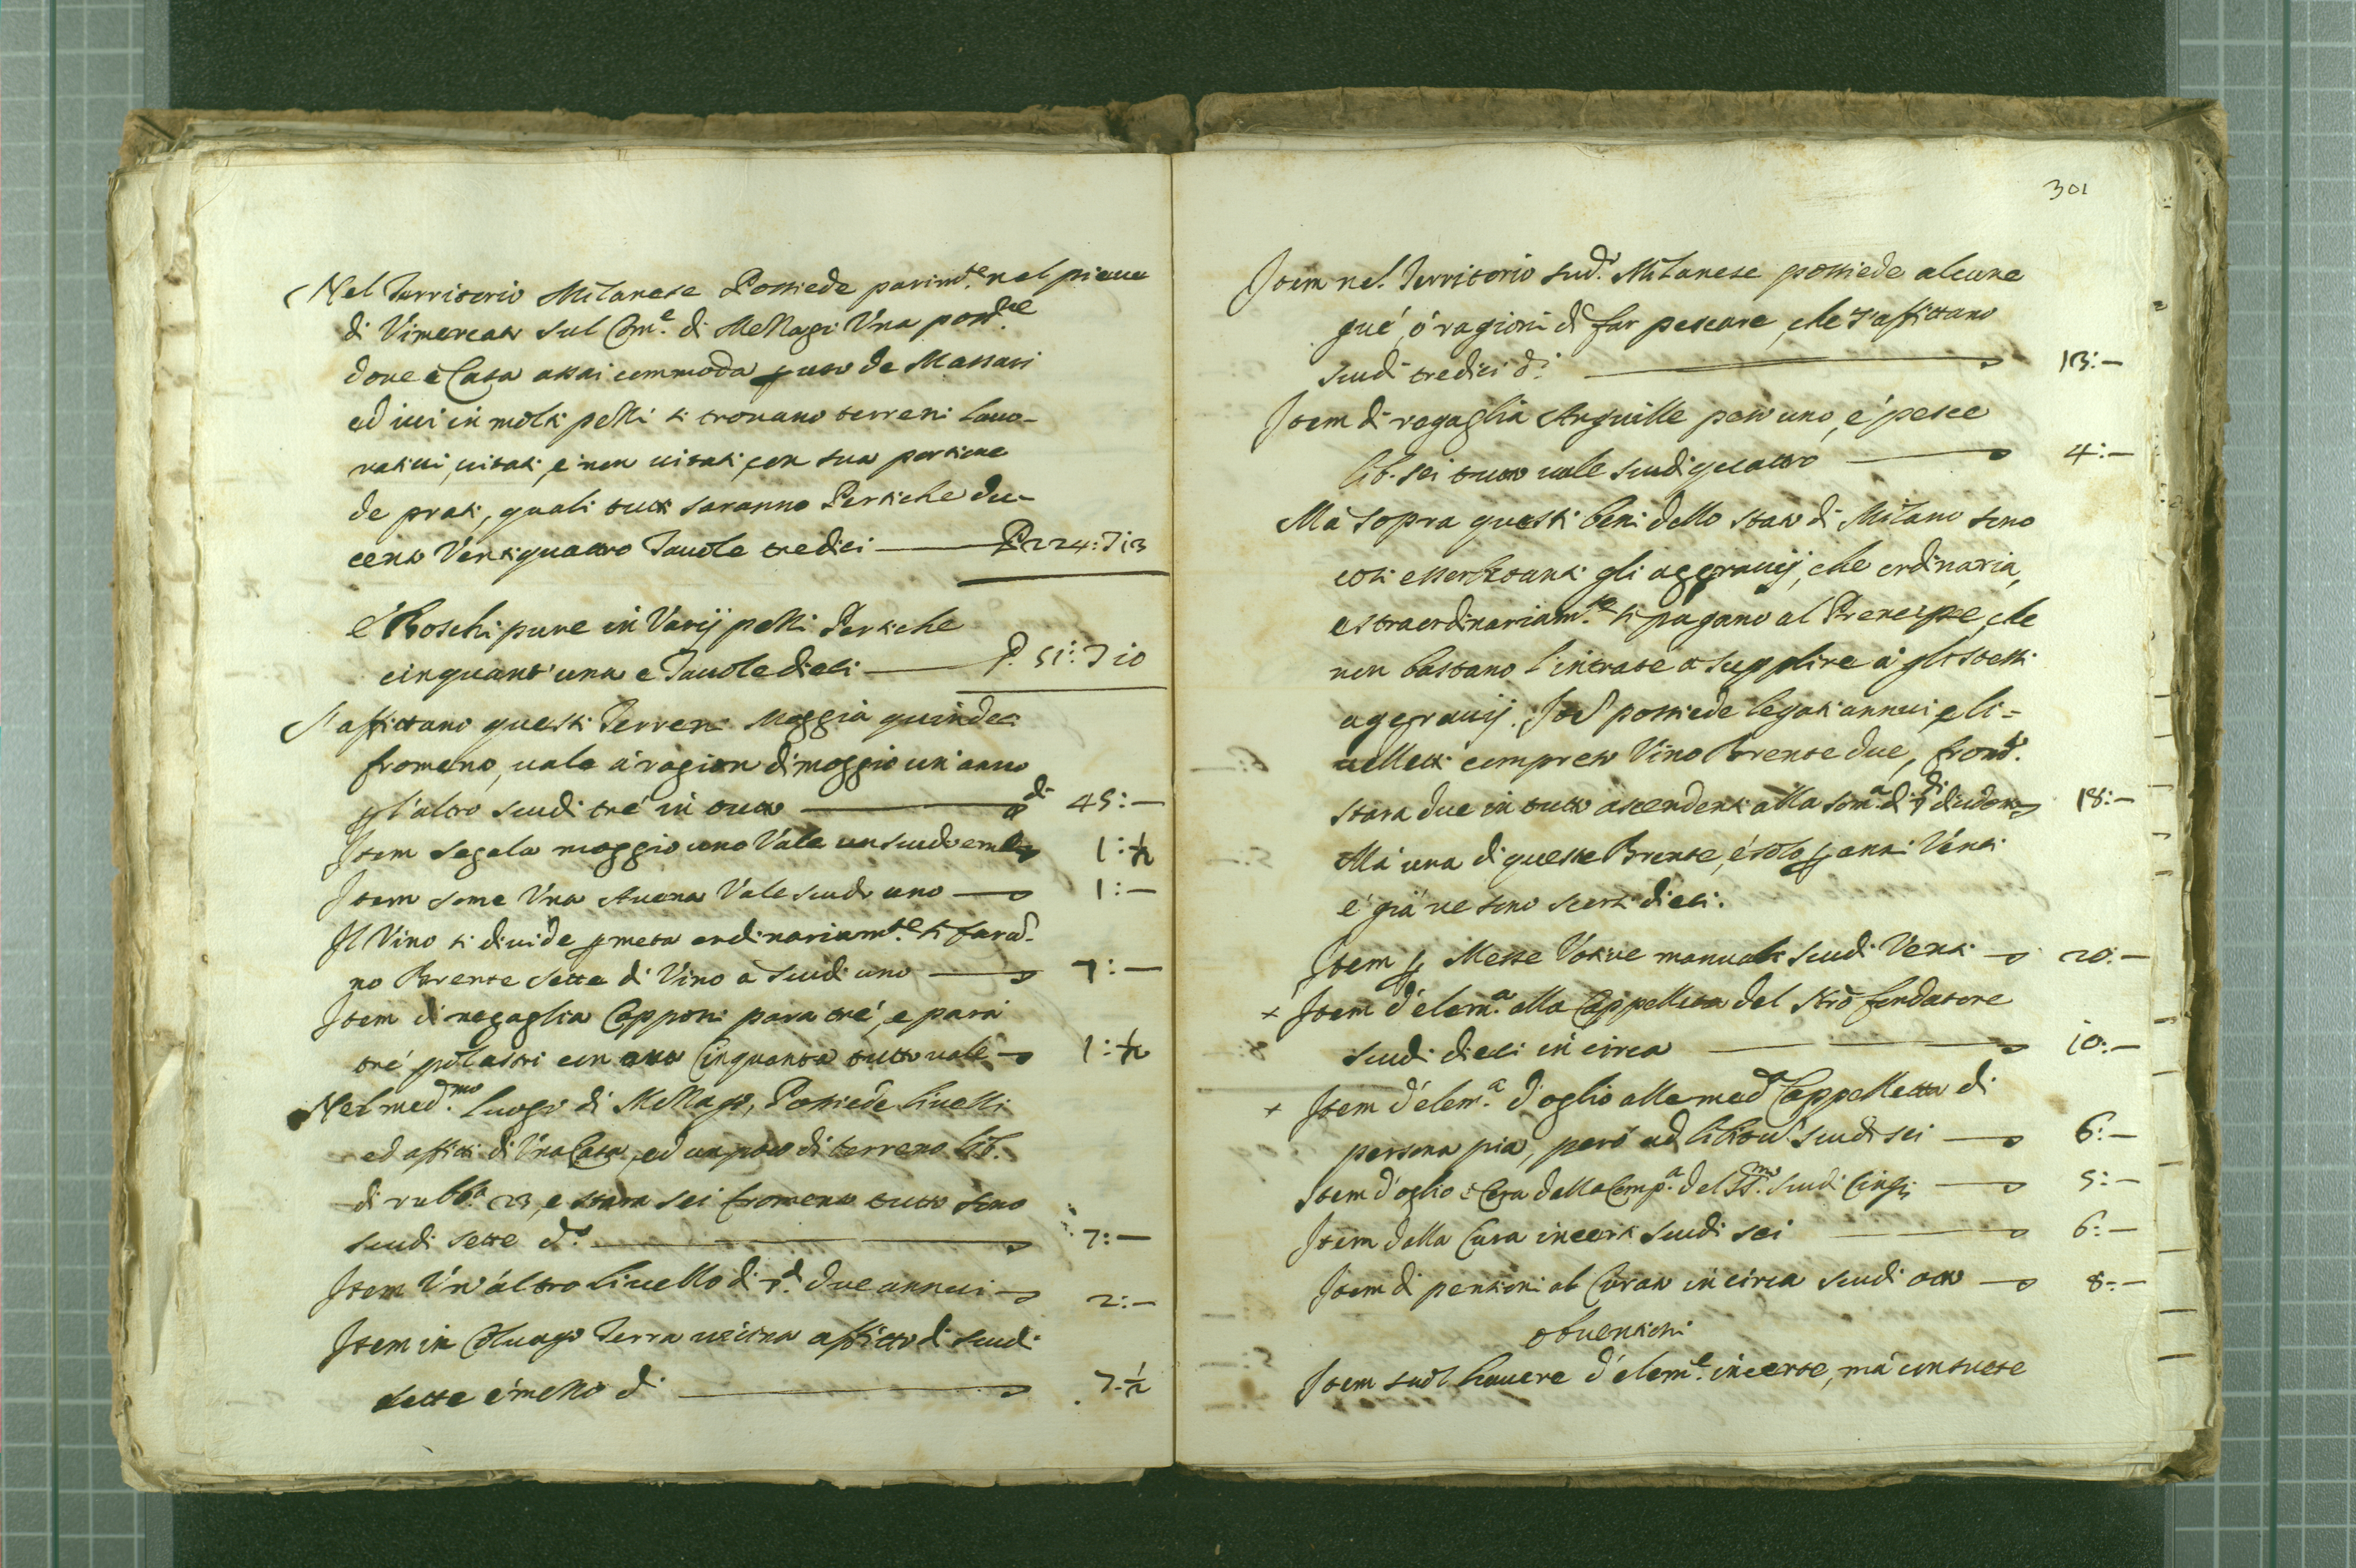 Nel Territorio Milanese Possiede parim.te nel pieue
di Vimercato sul Com.e di Mezzago Una poss.ne
doue è Casa assai commoda per uso de Massari
ed iui in molti pezzi si trouano terreni lauo-
ratiui, uitati, e non uitati, con sua portione
de prati, quali tutti saranno Pertiche du-
cento Ventiquattro Tauole tredici P. 224: T 13
e Boschi pure in Varij pezzi Pertiche
cinquant'una e Tauole dieci P. 51: T 10
S'affittano questi Terreni Moggia quindeci
fromento, uale à ragion di moggio un'anno
per l'altro scudi trè in tutto di 45:—
Item segala moggio uno Vale un scudo e mezo 1:½
Item some Una Auena Vale scudo uno 1:—
Il Vino si diuide per metà ordinariam.te si faran-
no Brente sette di Vino à scudi uno 7:—
Item di regaglia Capponi para trè, e para
trè polastri con oua Cinquanta tutto uale 1:½
Nel med.mo luogo di Mezzago, Possiede liuelli
ed affitti di Una Casa, ed un poco di terreno lib.
di rubb.a 23, e stara sei fromento tutto sono
scudi sette d. 7:—
Item Un'altro liuello di due annui 2:—
Item in Colnago Terra uicina affitto di scudi
sette e mezzo d. 7.½
301
Item nel Territorio sud.o Milanese possiede alcune
que, ò ragioni di far pescare, che s'affittano
scudi tredici d. 13:—
Item di regaglia Anguille peso uno, e pesce
lib. sei tutto uale scudi quattro 4:—
Mà sopra questi beni dello stato di Milano sono
così essorbitanti gli aggrauij, che ordinaria,
estraordinariam.te si pagano al Prencipe, che
non bastano l'intrate a supplire à gli stessi
aggrauij. possiede legati annui, e li=
uelletti compreso Vino Brente due, from.to
stara due in tutto ascendenti alla som.a di dicidotto 18:—
Mà una di queste Brente, è solo per anni Venti
e già ne sono scorsi dieci.
Item per Messe Votiue manuali scudi Venti 20:—
+ Item d'elem.a alla Cappelletta del fondatore
scudi dieci in circa 10:—
+ Item d'elem.a d'oglio alla med.a Cappelletta di
persona pia, però ad libitu scudi sei 6:—
Item d'oglio e Cera dalla Comp.a del SS.mo scudi Cinq; 5:—
Item dalla Cura incerti scudi sei 6:—
Item di pensioni al Curato in circa scudi otto 8:—
obuentioni
Item suol hauere d'elem.e incerte, mà consuete